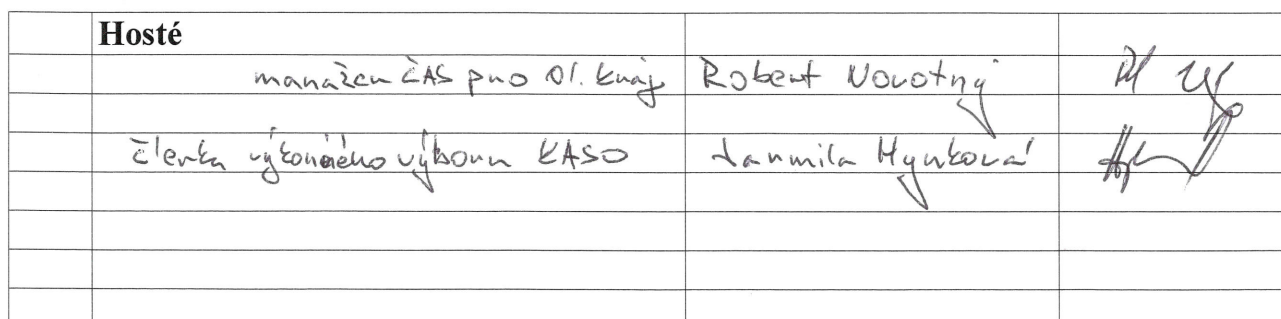 Hosté
manažer ČAS pro Ol. kraj Robert Novotný
členka výkonného výboru KASO Jarmila Hynková